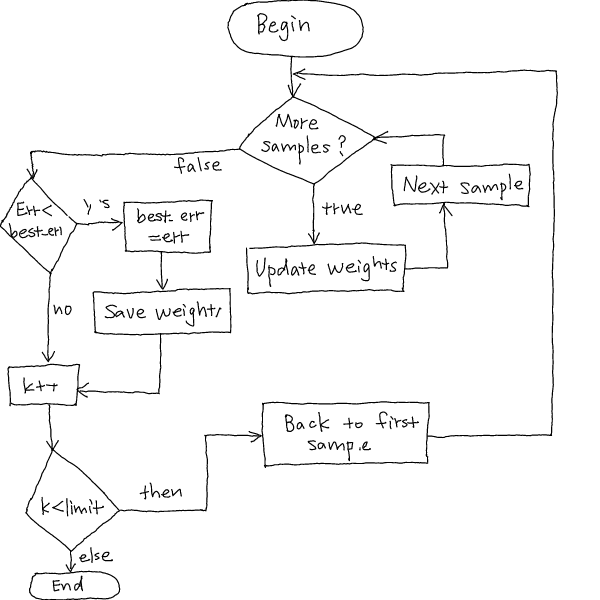 Begin
More
samples?
false
true
Next sample
Update weights
Err<
best_err
best_err
=err
no
Save weights
k++
Back to first
k<limit
then
else
End